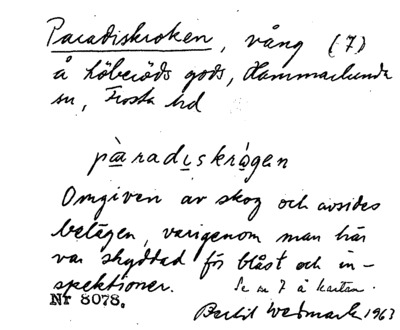 Paradiskroken, vång (7)
å Löberöds gods, Hammarlunda
sn, Frosta hd
pàradiskrògen
Omgiven av skog och avsides
belägen, varigenom man här
var skyddad för blåst och in-
spektioner. Se nr 7 å kartan.
Nr 8078.
Bertil Wedmark 1963